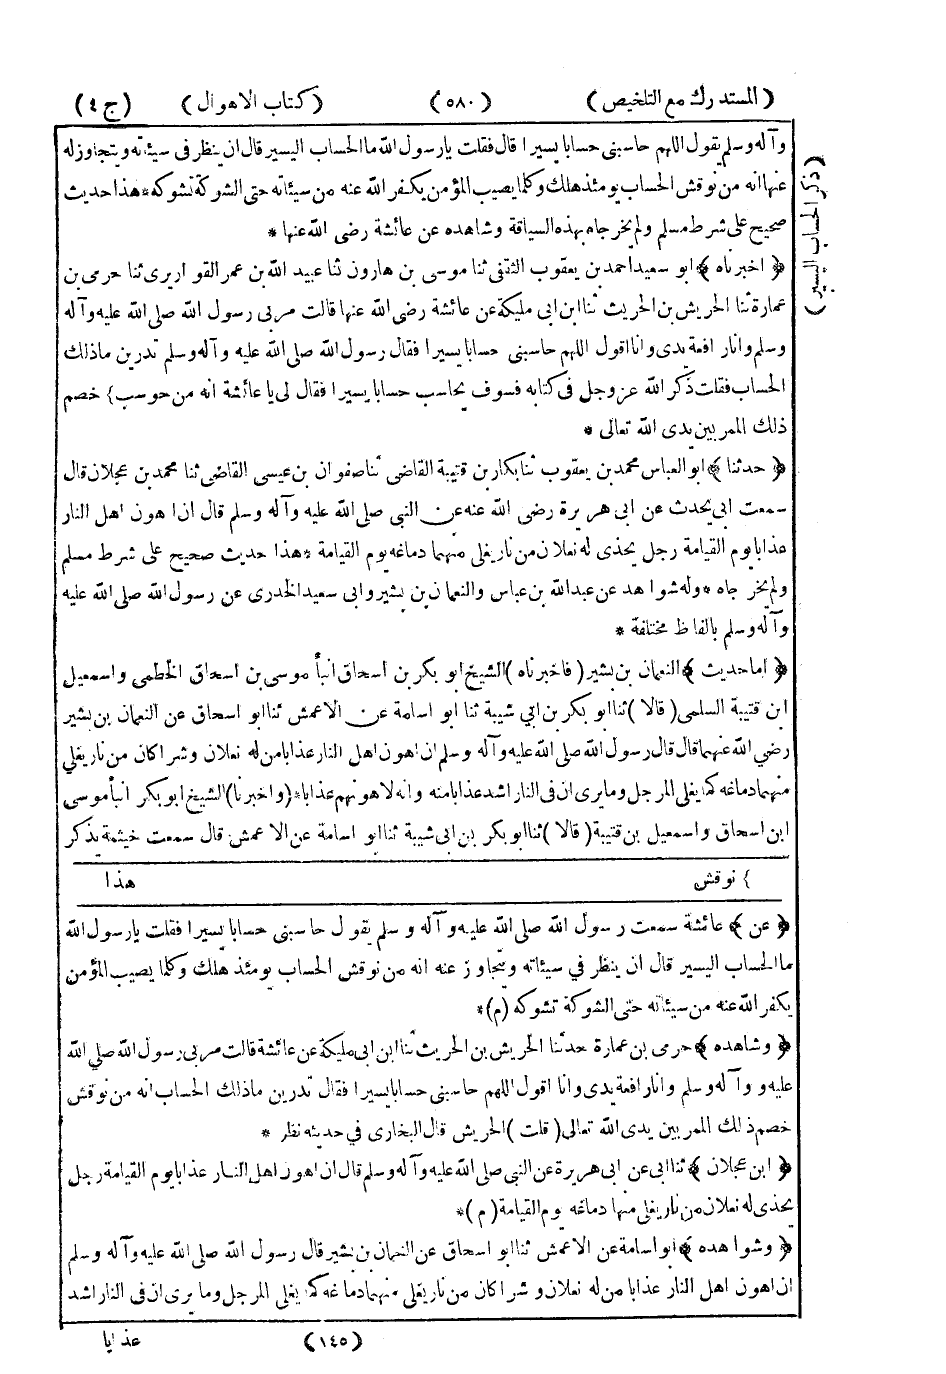 (المستدرك مع التلخيص) (٥٨٠) (كتاب الاهوال) (ج ٤)
وآله وسلم يقول اللهم حاسبني حسابا يسيرا قال فقلت يارسول الله ما الحساب اليسير قال ان ينظر فى سيئاته ويتجاوز له
عنها انه من نوقش الحساب يومئذ هلك وكلما يصيب المؤمن يكفر الله عنه من سيئاته حتى الشوكة تشوكه * هذا حديث
صحيح على شرط مسلم ولم يخرجاه بهذه السياقة وشاهده عن عائشة رضى الله عنها *
﴿ اخبرناه ﴾ ابو سعيد احمد بن يعقوب الثقفى ثنا موسى بن هارون ثنا عبيد الله بن عمر القواريرى ثنا حرمى بن
عمارة ثنا الحريش بن الحريث ثنا ابن ابى مليكة عن عائشة رضى الله عنها قالت مر بى رسول الله صلى الله عليه وآله
وسلم وانا رافعة يدى وانا اقول اللهم حاسبنى حسابا يسيرا فقال رسول الله صلى الله عليه وآله وسلم تدرين ماذلك
الحساب فقلت ذكر الله عز وجل فى كتابه فسوف يحاسب حسابا يسيرا فقال لى يا عائشة انه من حوسب} خصم
ذلك الممر بين يدى الله تعالى *
﴿ حدثنا ﴾ ابو العباس محمد بن يعقوب ثنا بكار بن قتيبة القاضى ثنا صفوان بن عيسى القاضى ثنا محمد بن عجلان قال
سمعت ابى يحدث عن ابى هريرة رضى الله عنه عن النبى صلى الله عليه وآله وسلم قال ان اهون اهل النار
عذابا يوم القيامة رجل يحذى له نعلان من نار يغلى منهما دماغه يوم القيامة * هذا حديث صحيح على شرط مسلم
ولم يخرجاه * وله شواهد عن عبد الله بن عباس والنعمان بن بشير وابى سعيد الخدرى عن رسول الله صلى الله عليه
وآله وسلم بالفاظ مختلفة *
﴿ اما حديث ﴾ النعمان بن بشير ( فاخبرناه ) الشيخ ابو بكر بن اسحاق انبأ موسى بن اسحاق الخطمى واسمعيل
ابن قتيبة السلمى ( قالا ) ثنا ابو بكر بن ابي شيبة ثنا ابو اسامة عن الاعمش ثنا ابو اسحاق عن النعمان بن بشير
رضي الله عنهما قال قال رسول الله صلى الله عليه وآله وسلم ان اهون اهل النار عذابا من له نعلان وشراكان من نار يغلي
منهما دماغه كما يغلى المرجل وما يرى ان فى النار اشد عذابا منه وانه لاهونهم عذابا * (واخبرنا) الشيخ ابو بكر انبأ موسى
ابن اسحاق واسمعيل بن قتيبة ( قالا ) ثنا ابو بكر بن ابى شيبة ثنا ابو اسامة عن الاعمش قال سمعت خيثمة يذكر
} نوقش هذا
﴿ عن ﴾ عائشة سمعت رسول الله صلى الله عليه وآله وسلم يقول حاسبنى حسابا يسيرا فقلت يارسول الله
ما الحساب اليسير قال ان ينظر في سيئاته ويتجاوز عنه انه من نوقش الحساب يومئذ هلك وكلما يصيب المؤمن
يكفر الله عنه من سيئاته حتى الشوكة تشوكه (م) *
﴿ وشاهده ﴾ حرمى بن عمارة حدثنا الحريش بن الحريث ثنا ابن ابى مليكة عن عائشة قالت مر بى رسول الله صلي الله
عليه و وآله وسلم وانا رافعة يدى وانا اقول اللهم حاسبني حسابا يسيرا فقال تدرين ماذلك الحساب انه من نوقش
خصم ذلك الممر بين يدى الله تعالى ( قلت ) الحريش قال البخارى في حديثه نظر *
﴿ ابن عجلان ﴾ ثنا ابى عن ابى هريرة عن النبى صلى الله عليه وآله وسلم قال ان اهون اهل النار عذابا يوم القيامة رجل
يحذى له نعلان من نار يغلى منها دماغه يوم القيامة ( م ) *
﴿ وشواهده ﴾ ابو اسامة عن الاعمش ثنا ابو اسحاق عن النعمان بن بشير قال رسول الله صلى الله عليه وآله وسلم
ان اهون اهل النار عذابا من له نعلان وشراكان من نار يغلى منهما دماغه كما يغلى المرجل وما يرى ان فى النار اشد
(١٤٥) عذابا
(ذكر الحساب اليسير)